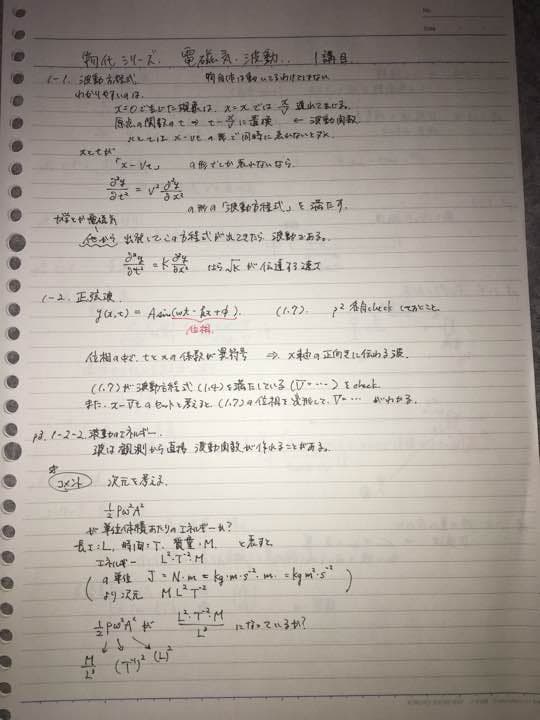 No.
Date
物代シリーズ. 電磁気・波動. 1講目
1-1. 波動方程式 物自体は動いてるわけじゃない
わかりやすいのは.
x=0で生じた現象は、x=xでは x/v 遅れて生じる.
原点の関数の t ⇒ t - x/v に置換 ← 波動関数
xとtは x-vt の形で同時に
xとtが
「x-vt」 の形でしか表れないなら.
∂²y/∂t² = v² ∂²y/∂x²
の形の「波動方程式」を満たす.
力学とか電磁気
他から 出発してこの方程式が出てきたら 波動である。
∂²y/∂t² = K ∂²y/∂x² なら √K が伝達する速さ
1-2. 正弦波
y(x,t) = A sin(ωt - kx + φ). (1.7). p2 各自check しておくこと
位相
位相の中で、tとxの係数が異符号 ⇒ x軸の正向きに伝わる波.
(1.7) が波動方程式 (1.4) を満たしている (V=…) をcheck.
また、x-Vt のセットと考えると、(1.7) の位相を変形して、V=… がわかる.
p3. 1-2-2. 波動のエネルギー.
波は観測から直接 波動関数が作れることがある。
コメント 次元を考える.
1/2 ρω²A²
が単位体積あたりのエネルギーか?
長さ:L, 時間:T, 質量:M. と表すと
エネルギー L²・T⁻²・M
の単位 J = N・m = kg・m・s⁻²・m. = kg m²・s⁻²
より次元 M L² T⁻²
1/2 ρω²A² が L²・T⁻²・M / L³ になっているか?
M/L³ (T⁻¹)² (L)²